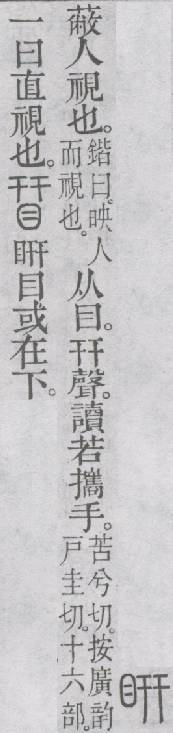 䀘
蔽人視也。鍇曰。映人而視也。从目。幵聲。讀若攜手。苦兮切。按廣韵戶圭切。十六部。
一曰直視也。䀘目或在下。